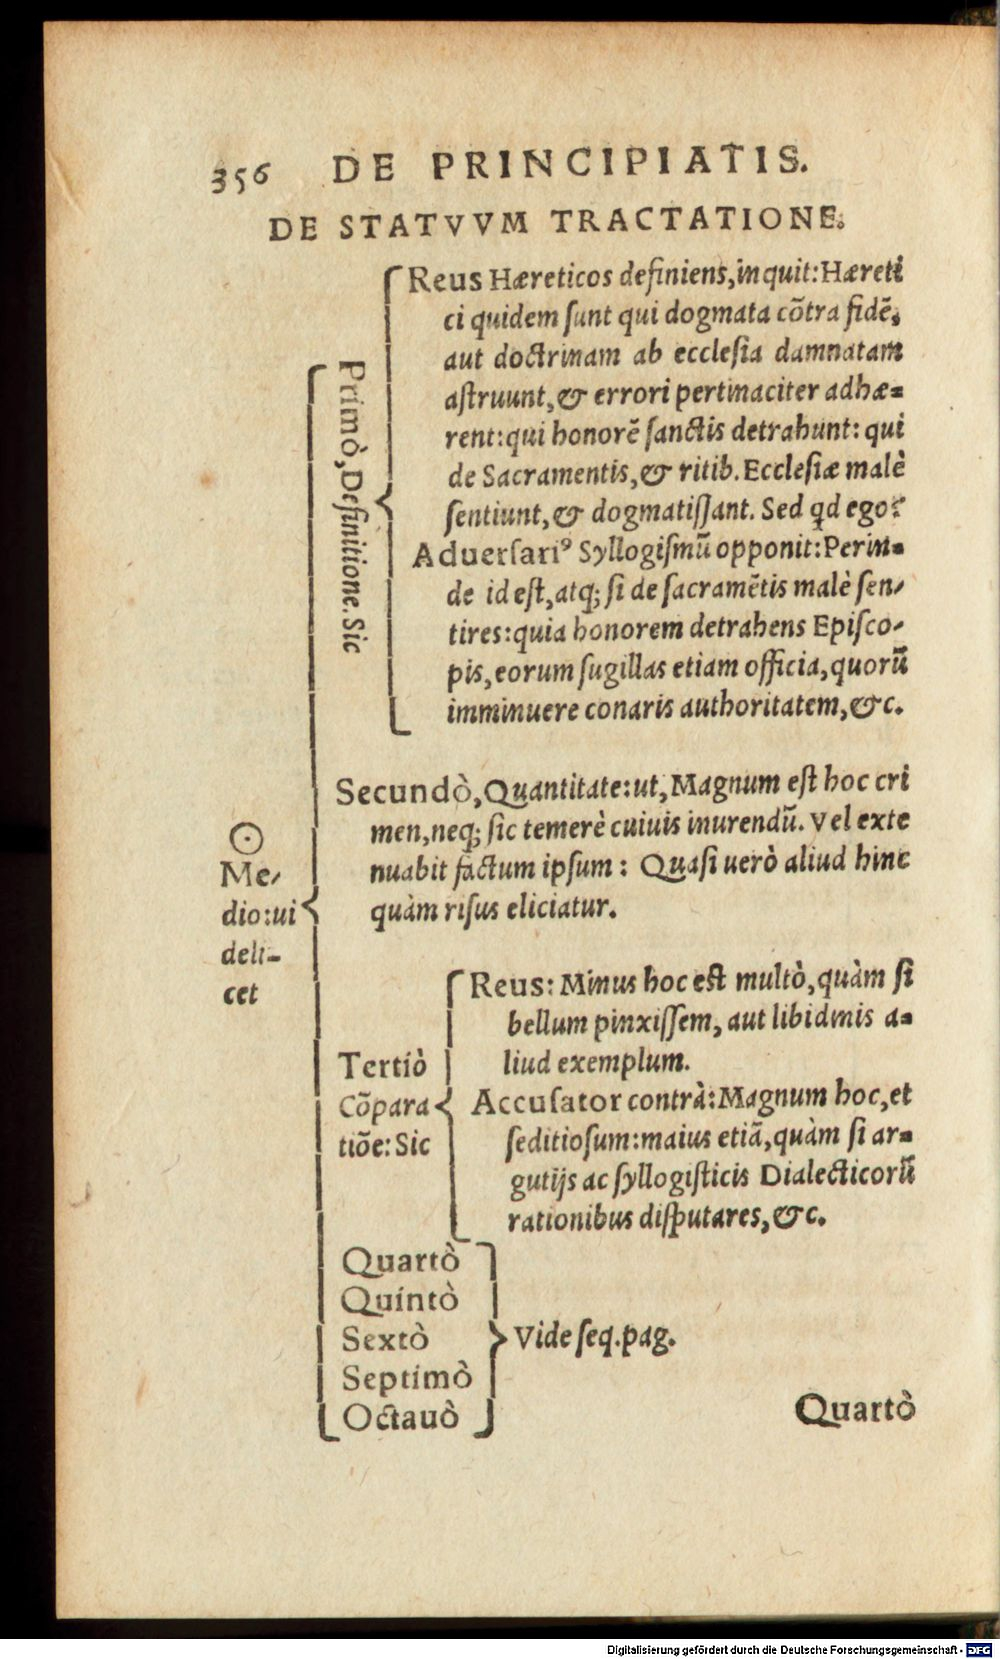 356 DE PRINCIPIATIS.
DE STATVVM TRACTATIONE.
☉
Me/
dio:ui
deli-
cet
Primò, Definitione. Sic
Reus Hæreticos definiens, inquit: Hæreti
ci quidem sunt qui dogmata cōtra fidē,
aut doctrinam ab ecclesia damnatam
astruunt, & errori pertinaciter adhæ=
rent: qui honorē sanctis detrahunt: qui
de Sacramentis, & ritib. Ecclesiæ malè
sentiunt, & dogmatissant. Sed qd ego?
Aduersariꝰ Syllogismū opponit: Perin=
de id est, atq; si de sacramētis malè sen/
tires: quia honorem detrahens Episco/
pis, eorum sugillas etiam officia, quorū
imminuere conaris authoritatem, &c.
Secundò, Quantitate: ut, Magnum est hoc cri
men, neq; sic temerè cuiuis inurendū. Vel exte
nuabit factum ipsum: Quasi uerò aliud hinc
quàm risus eliciatur.
Tertiò
Cōpara
tiōe: Sic
Reus: Minus hoc est multò, quàm si
bellum pinxissem, aut libidinis a=
liud exemplum.
Accusator contrà: Magnum hoc, et
seditiosum: maius etiā, quàm si ar=
gutijs ac syllogisticis Dialecticorū
rationibus disputares, &c.
Quartò
Quintò
Sextò
Septimò
Octauò
Vide seq. pag.
Quartò
Digitalisierung gefördert durch die Deutsche Forschungsgemeinschaft - DFG